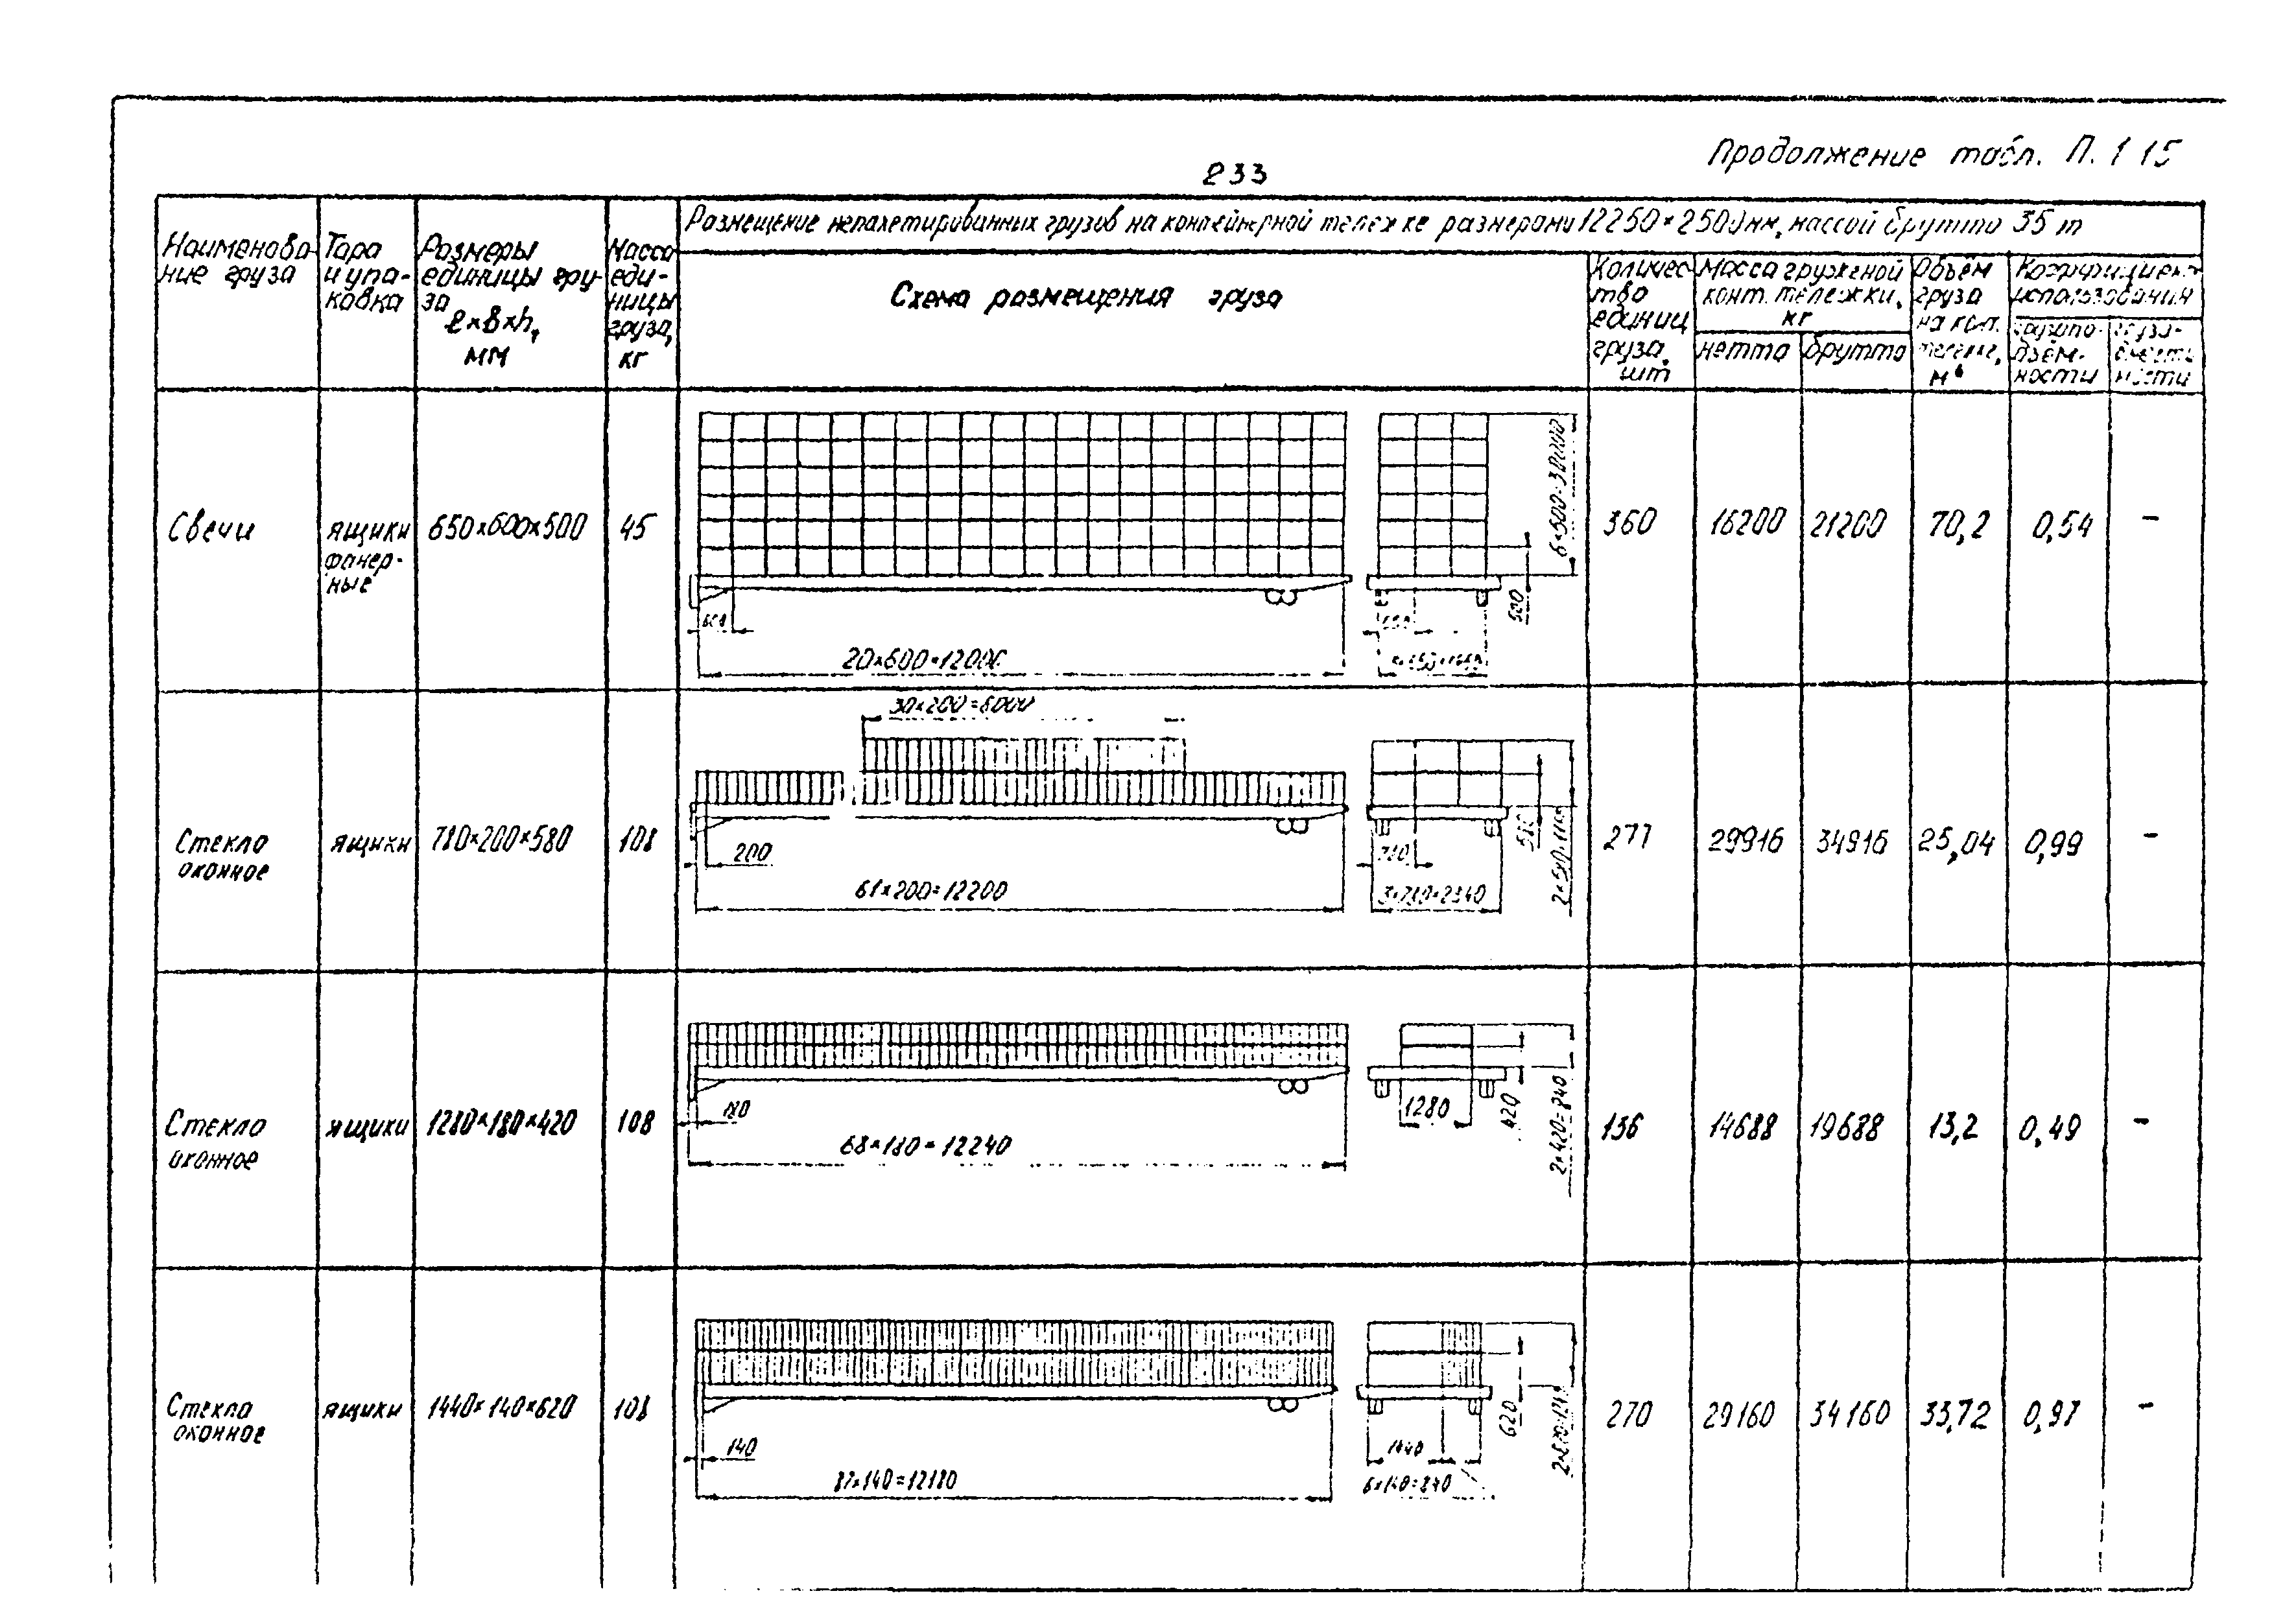 Продолжение табл. П. 1 15
233
Наименова-
ние груза
Тара
и упа-
ковка
Размеры
единицы гру-
за
l×b×h,
мм
Масса
еди-
ницы
груза,
кг
Размещение непакетированных грузов на контейнерной тележке размерами 12250×2500мм, массой брутто 35 т
Схема размещения груза
Количес-
тво
единиц
груза.
шт
Масса груженой
конт. тележки,
кг
нетто
брутто
Объём
груза
на кон.
м³
Коэффициент
использования
грузопо-
дъём-
ности
Свечи
ящики
фанер-
ные
650×600×500
45
6×500=3000
500
600
20×600=12000
360
16200
21200
70,2
0,54
-
30×200=6000
Стекло
оконное
ящики
780×200×580
108
200
61×200=12200
780
3×780=2340
580
277
29916
34916
25,04
0,99
-
Стекло
оконное
ящики
1280×180×420
108
180
68×180=12240
1280
420
2×420=840
136
14688
19688
13,2
0,49
-
Стекло
оконное
ящики
1440×140×620
108
140
87×140=12180
1440
6×140=840
620
270
29160
34160
33,72
0,97
-